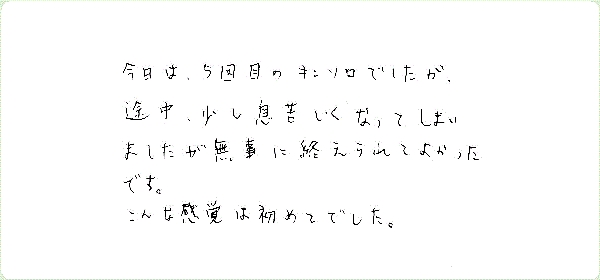 今日は、5回目のキンソロでしたが、
途中、少し息苦しくなってしまい
ましたが無事に終えられてよかった
です。
こんな感覚は初めてでした。